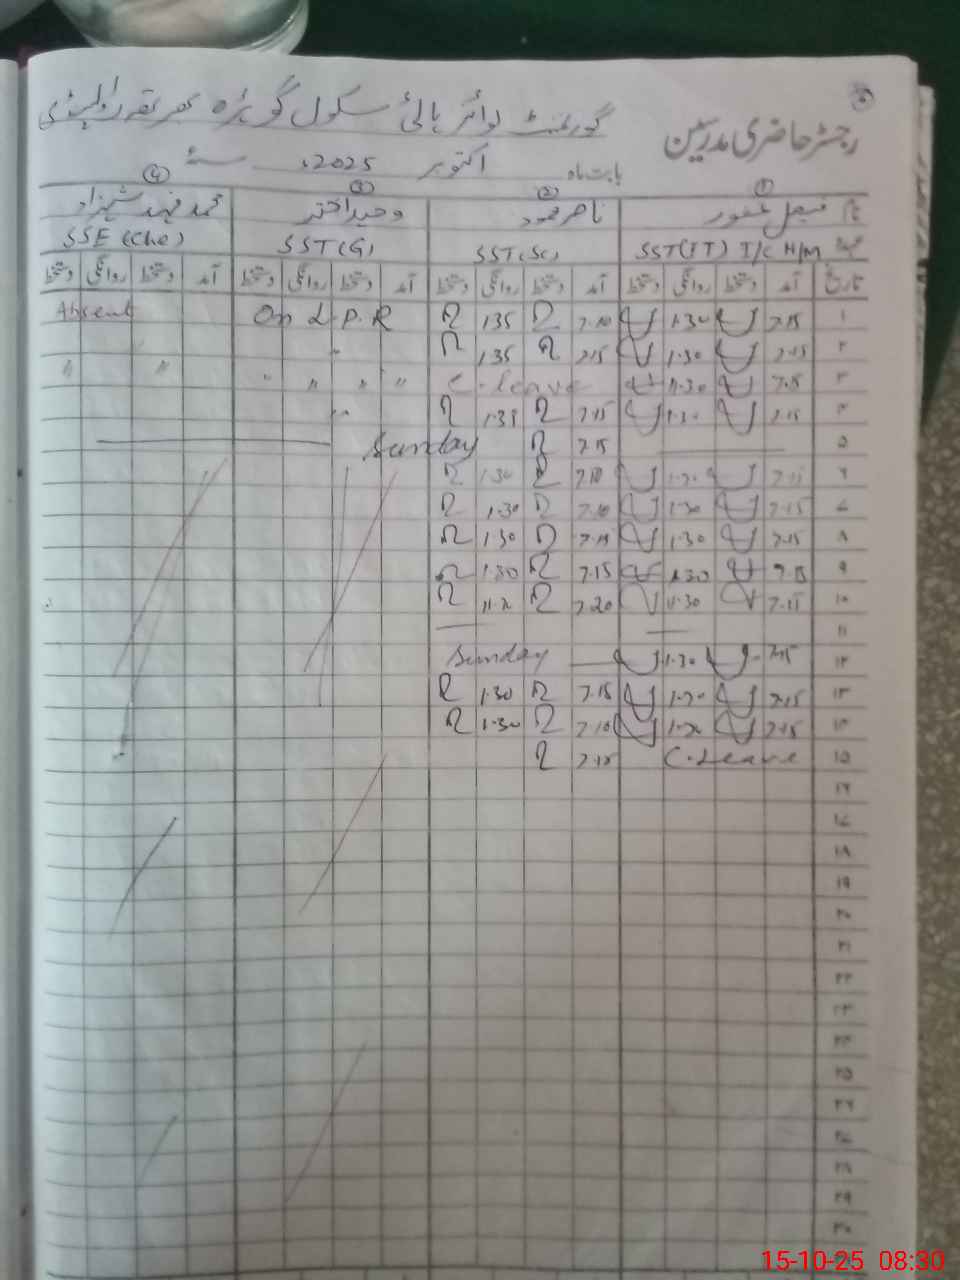 رجسٹر حاضری مدرسین گورنمنٹ بوائز ہائی سکول گوہڑہ
بابت ماہ اکتوبر 2025ء
① ② ③ ④
نام فیصل غفور ناصر محمود وحید اختر محمد فہد شہزاد
عہدہ SST(IT) I/C H/M SST(Sc) SST(G) SSE (Che)
تاریخ آمد دستخط روانگی دستخط آمد دستخط روانگی دستخط آمد دستخط روانگی دستخط آمد دستخط روانگی دستخط
۱ 7.15 1.30 7.10 1.35 On L.P.R Absent
۲ 7.15 1.30 7.15 1.35 "
۳ 7.15 1.30 C.leave " " " " " "
۴ 7.15 1.30 7.15 1.35 "
۵ 7.15 Sunday
۶ 7.15 1.30 7.10 1.30
۷ 7.15 1.30 7.10 1.30
۸ 7.15 1.30 7.15 1.30
۹ 7.15 1.30 7.15 1.30
۱۰ 7.15 1.30 7.20
۱۱
۱۲ 7.15 1.30 Sunday
۱۳ 7.15 1.30 7.15 1.30
۱۴ 7.15 1.30 7.10 1.30
۱۵ C.Leave 7.15
۱۶
۱۷
۱۸
۱۹
۲۰
۲۱
۲۲
۲۳
۲۴
۲۵
۲۶
۲۷
۲۸
۲۹
۳۰
15-10-25 08:30